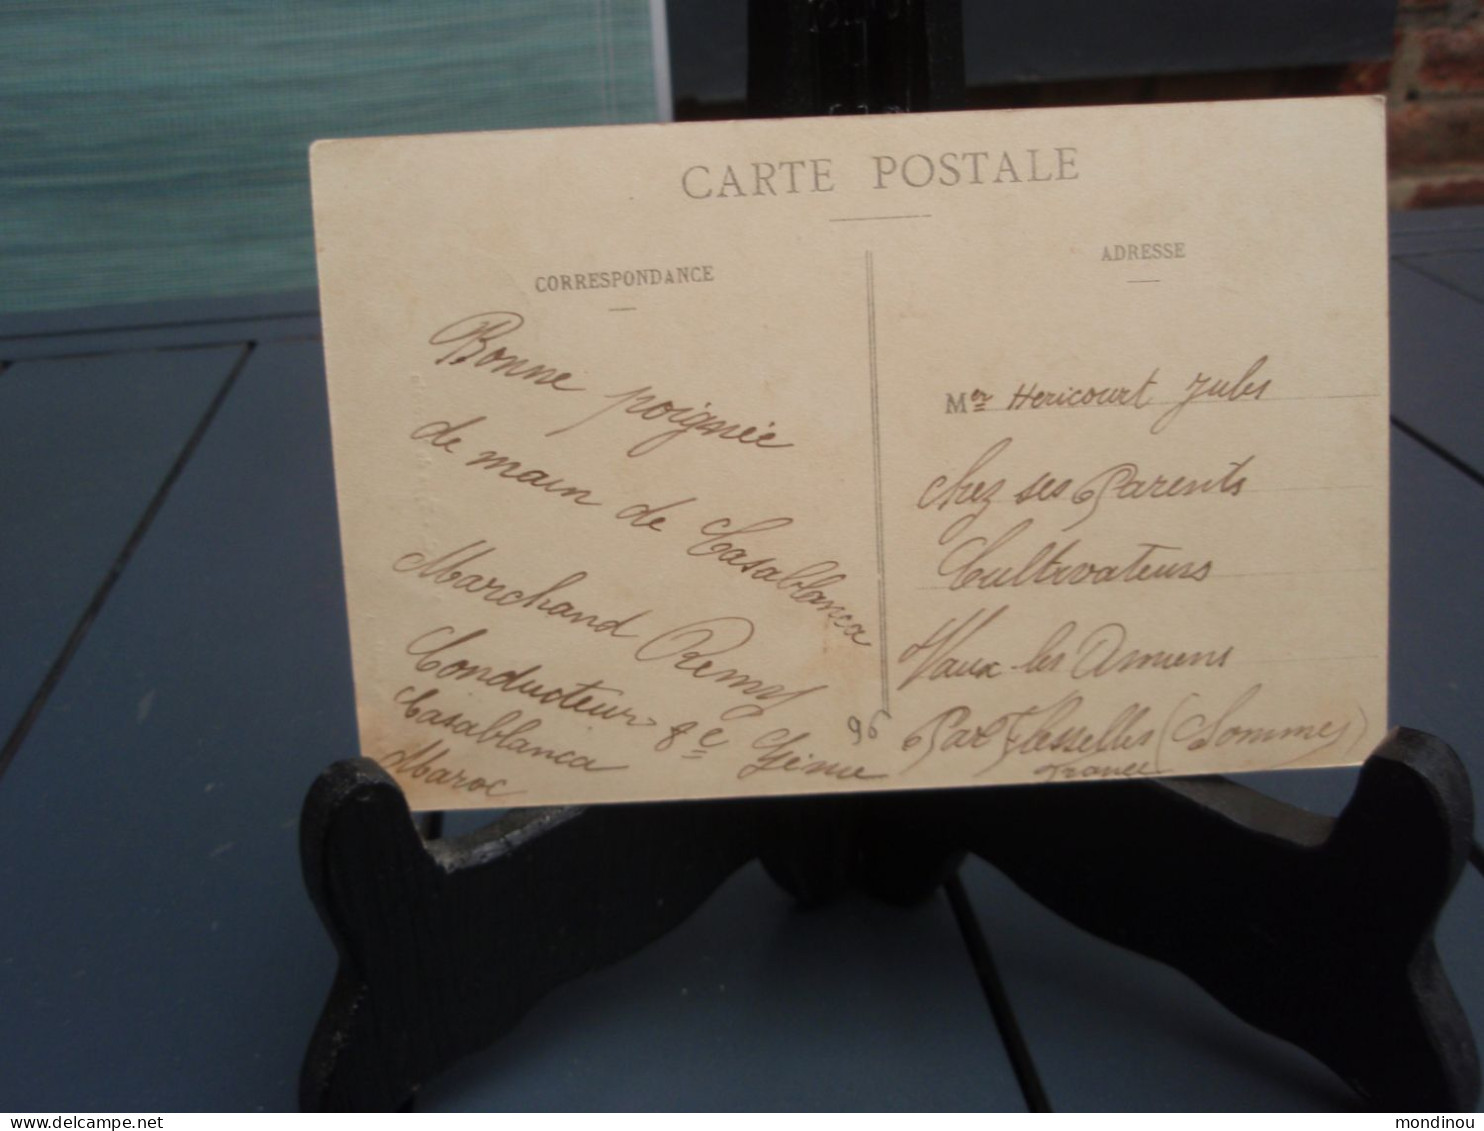 CARTE POSTALE
CORRESPONDANCE
Bonne poignée
de main de Casablanca
Marchand Remy
Conducteur 8e Génie
Casablanca
Maroc
96
ADRESSE
Mer Hericourt Jules
chez ses Parents
Cultivateurs
Vaux-les Amiens
Par Flesselles (Somme)
France
mondinou